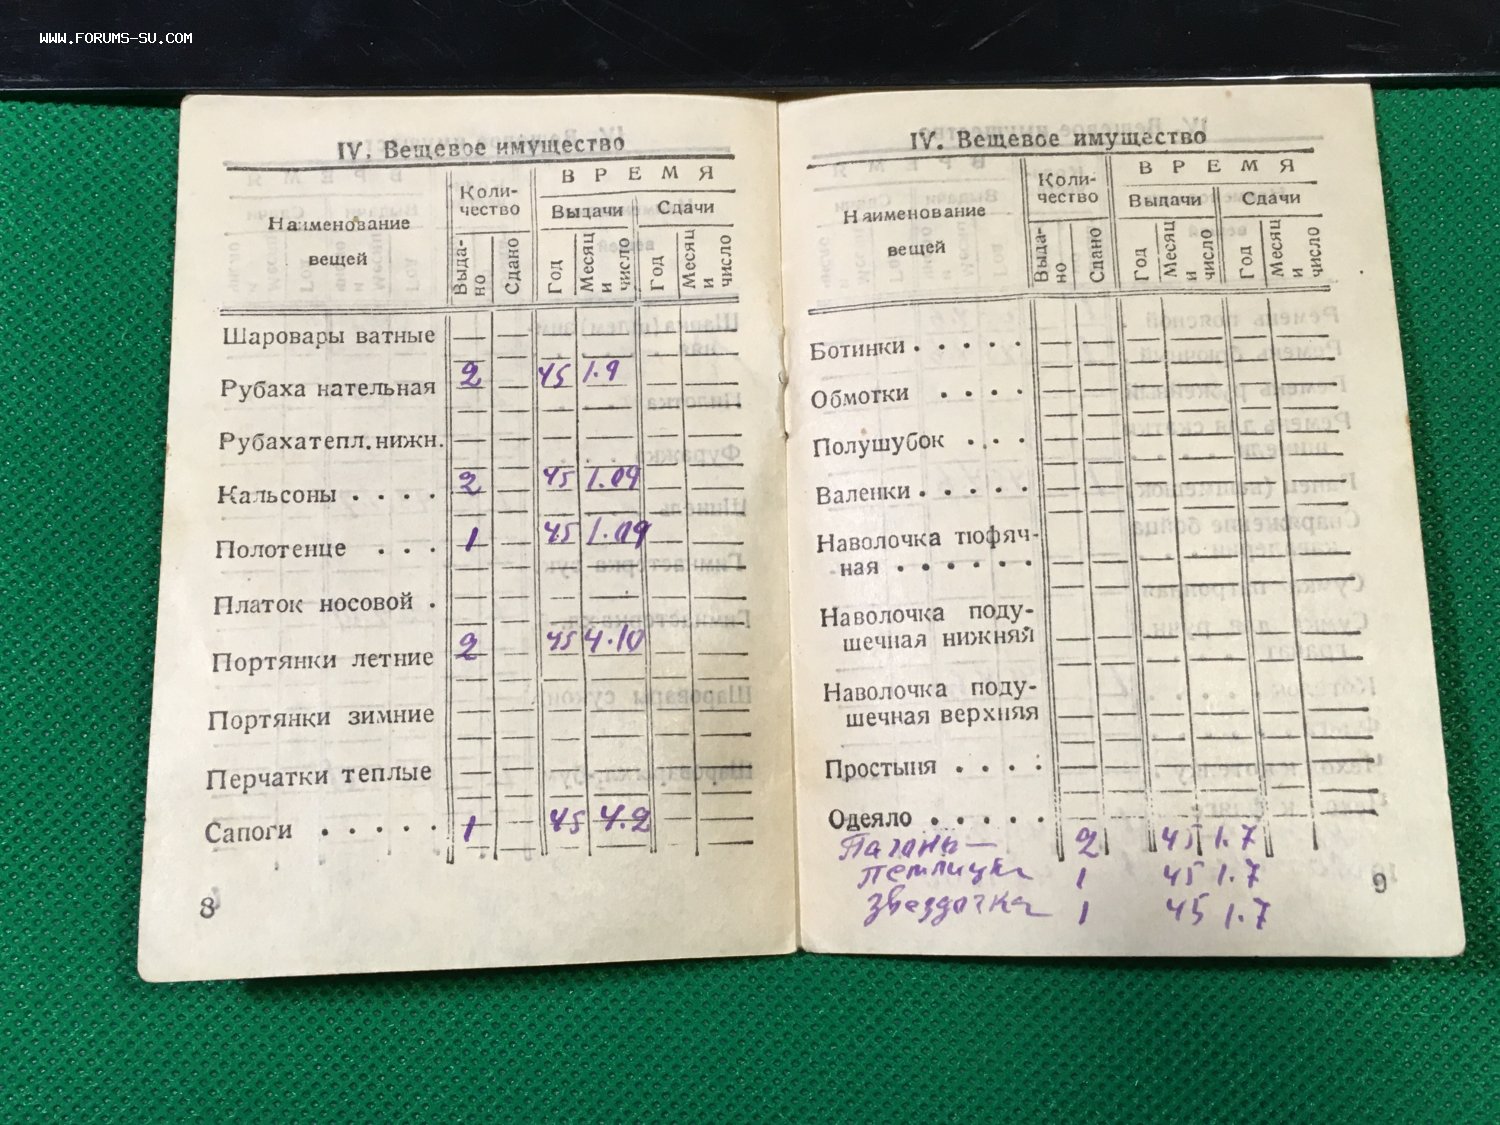 WWW.FORUMS-SU.COM
IV. Вещевое имущество
Наименование вещей
Коли-
чество
ВРЕМЯ
Выдачи Сдачи
Выда-
но
Сдано
Год
Месяц
и
число
Год
Месяц
и
число
Шаровары ватные
Рубаха нательная 2 45 1.9
Рубаха тепл. нижн.
Кальсоны . . . . 2 45 1.09
Полотенце . . . 1 45 1.09
Платок носовой .
Портянки летние 2 45 4.10
Портянки зимние
Перчатки теплые
Сапоги . . . . . 1 45 4.2
8
IV. Вещевое имущество
Наименование
вещей
Коли-
чество
ВРЕМЯ
Выдачи Сдачи
Выда-
но
Сдано
Год
Месяц
и
число
Год
Месяц
и
число
Ботинки . . . . .
Обмотки . . . .
Полушубок . . .
Валенки . . . . .
Наволочка тюфяч-
ная . . . . . .
Наволочка поду-
шечная нижняя
Наволочка поду-
шечная верхняя
Простыня . . . .
Одеяло . . . . .
Пагоны — 2 45 1.7
петлицы 1 45 1.7
звездочка 1 45 1.7
9